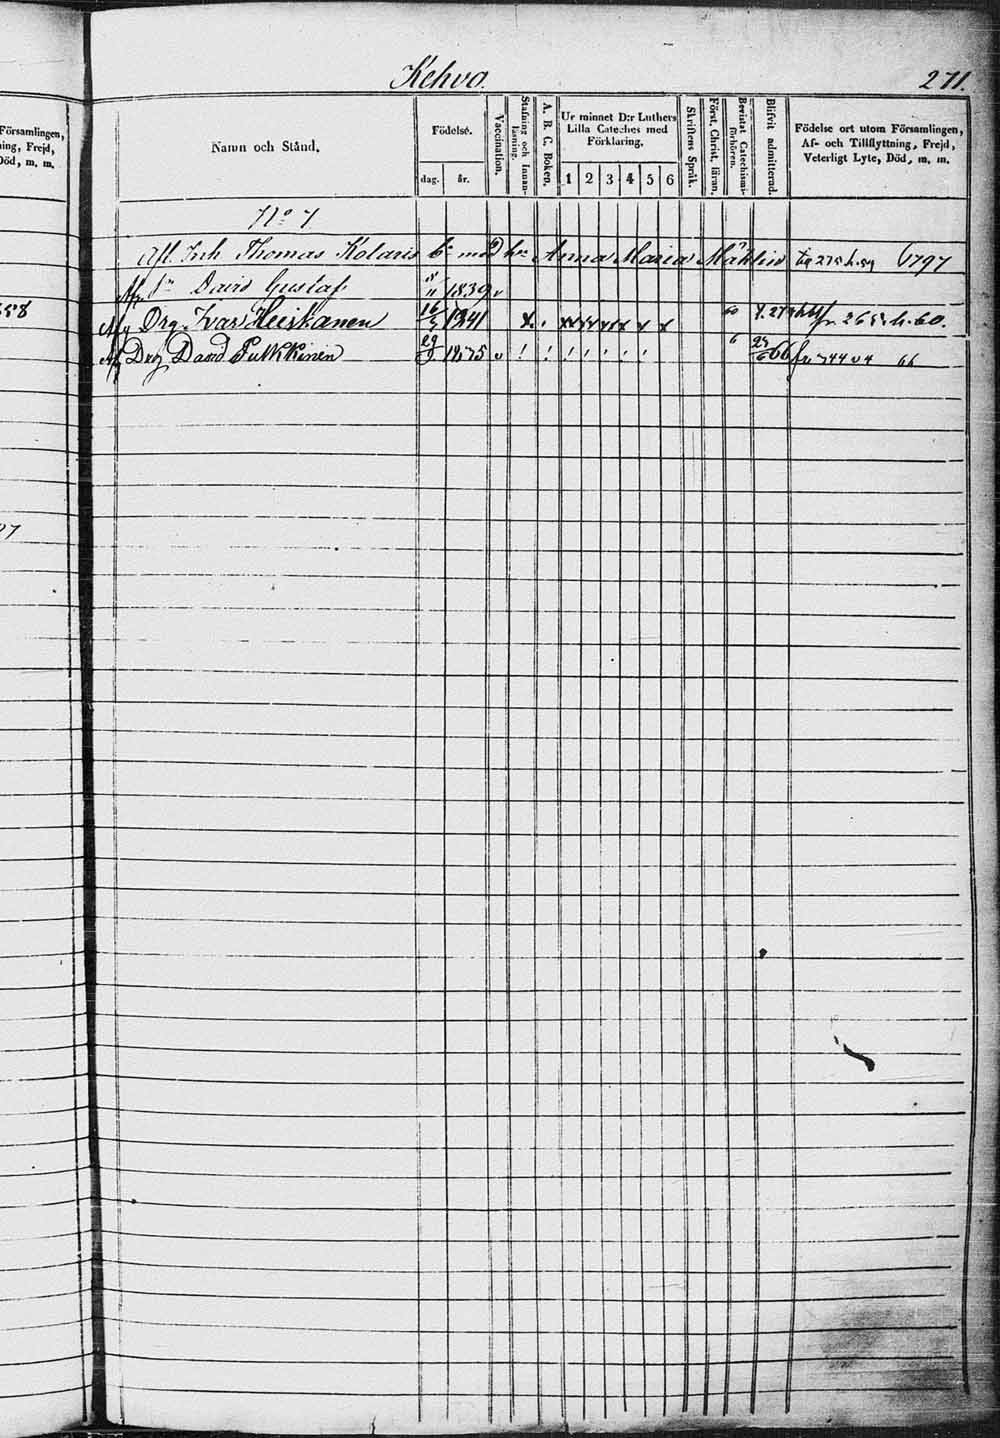 Kehvo. 271.
Församlingen,
ing, Frejd,
Död, m. m.
Namn och Stånd.
Födelse.
dag. år.
Vaccination.
Stafning och Innan-
läsning.
A. B. C. Boken.
Ur minnet D:r Luthers
Lilla Cateches med
Förklaring.
1 2 3 4 5 6
Skriftens Språk.
Först. Christ. läran.
Bevistat Catechismi-
förhören.
Blifvit admitterad.
Födelse ort utom Församlingen,
Af- och Tillflyttning, Frejd,
Veterligt Lyte, Död, m. m.
No 7
Afl. Inh Thomas Kolaris Anna Maria 1797
Sn David Gustaf 8/11 1839 v
Drg. Ivar Heiskanen 16/ 1841 x x x x x x 60 fr 265 h. 60.
Drg David Pulkkinen 29/ v ! ! ! ! ! ! ! 6 66 fr 744 v 4 66